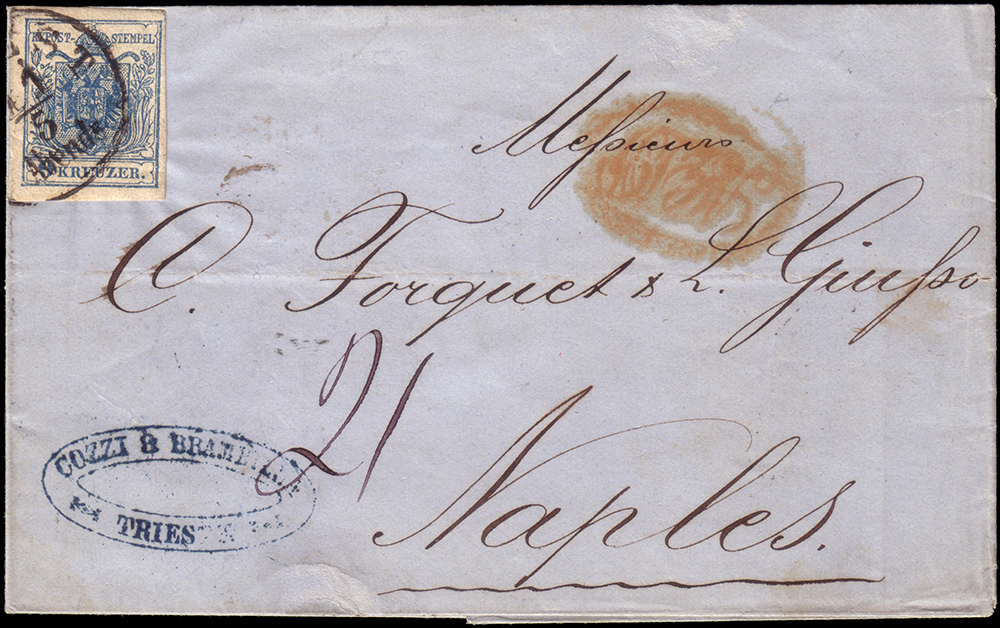 KKPOST-STEMPEL
KREUZER.
1
5
Abends
Messieurs
C. Forquet & L. Giusso
21
Naples.
COZZI & BRAMBILLA
TRIESTE